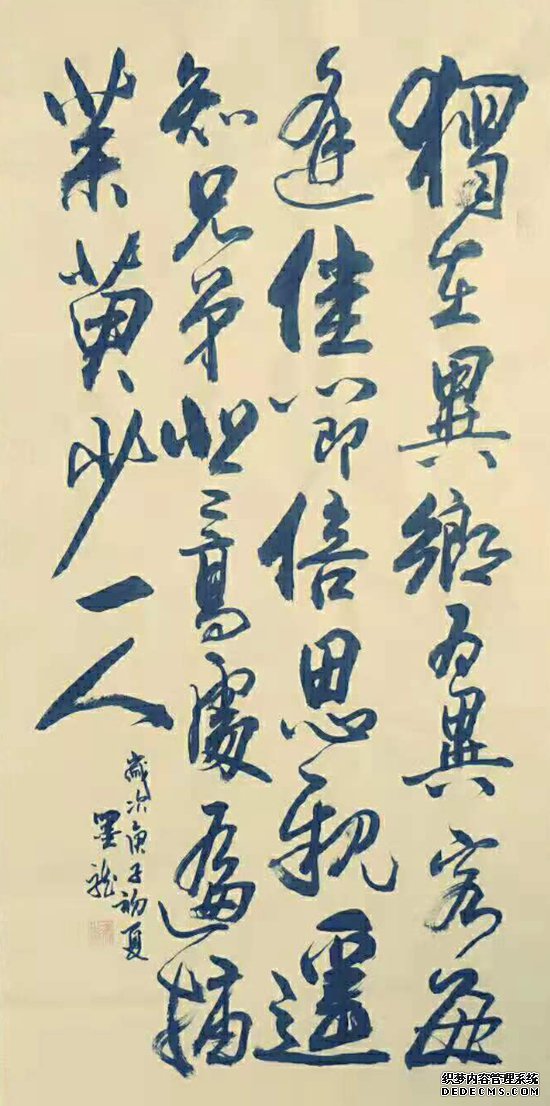 獨在異鄉為異客每
逢佳節倍思親遥
知兄弟登高處遍插
茱萸少一人
歲次庚子初夏
墨龍
织梦内容管理系统
DEDECMS.COM